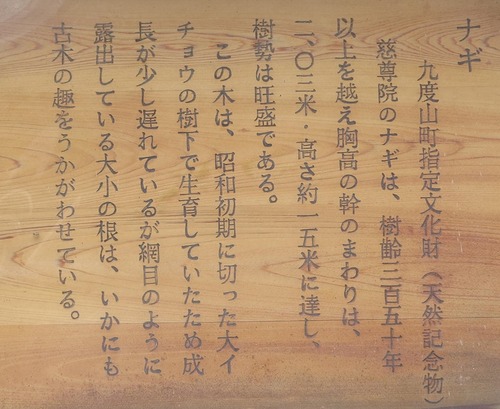 ナギ
九度山町指定文化財（天然記念物）
慈尊院のナギは、樹齢三百五十年
以上を越え胸高の幹のまわりは、
二、〇三米・高さ約一五米に達し、
樹勢は旺盛である。
この木は、昭和初期に切った大イ
チョウの樹下で生育していたため成
長が少し遅れているが網目のように
露出している大小の根は、いかにも
古木の趣をうかがわせている。